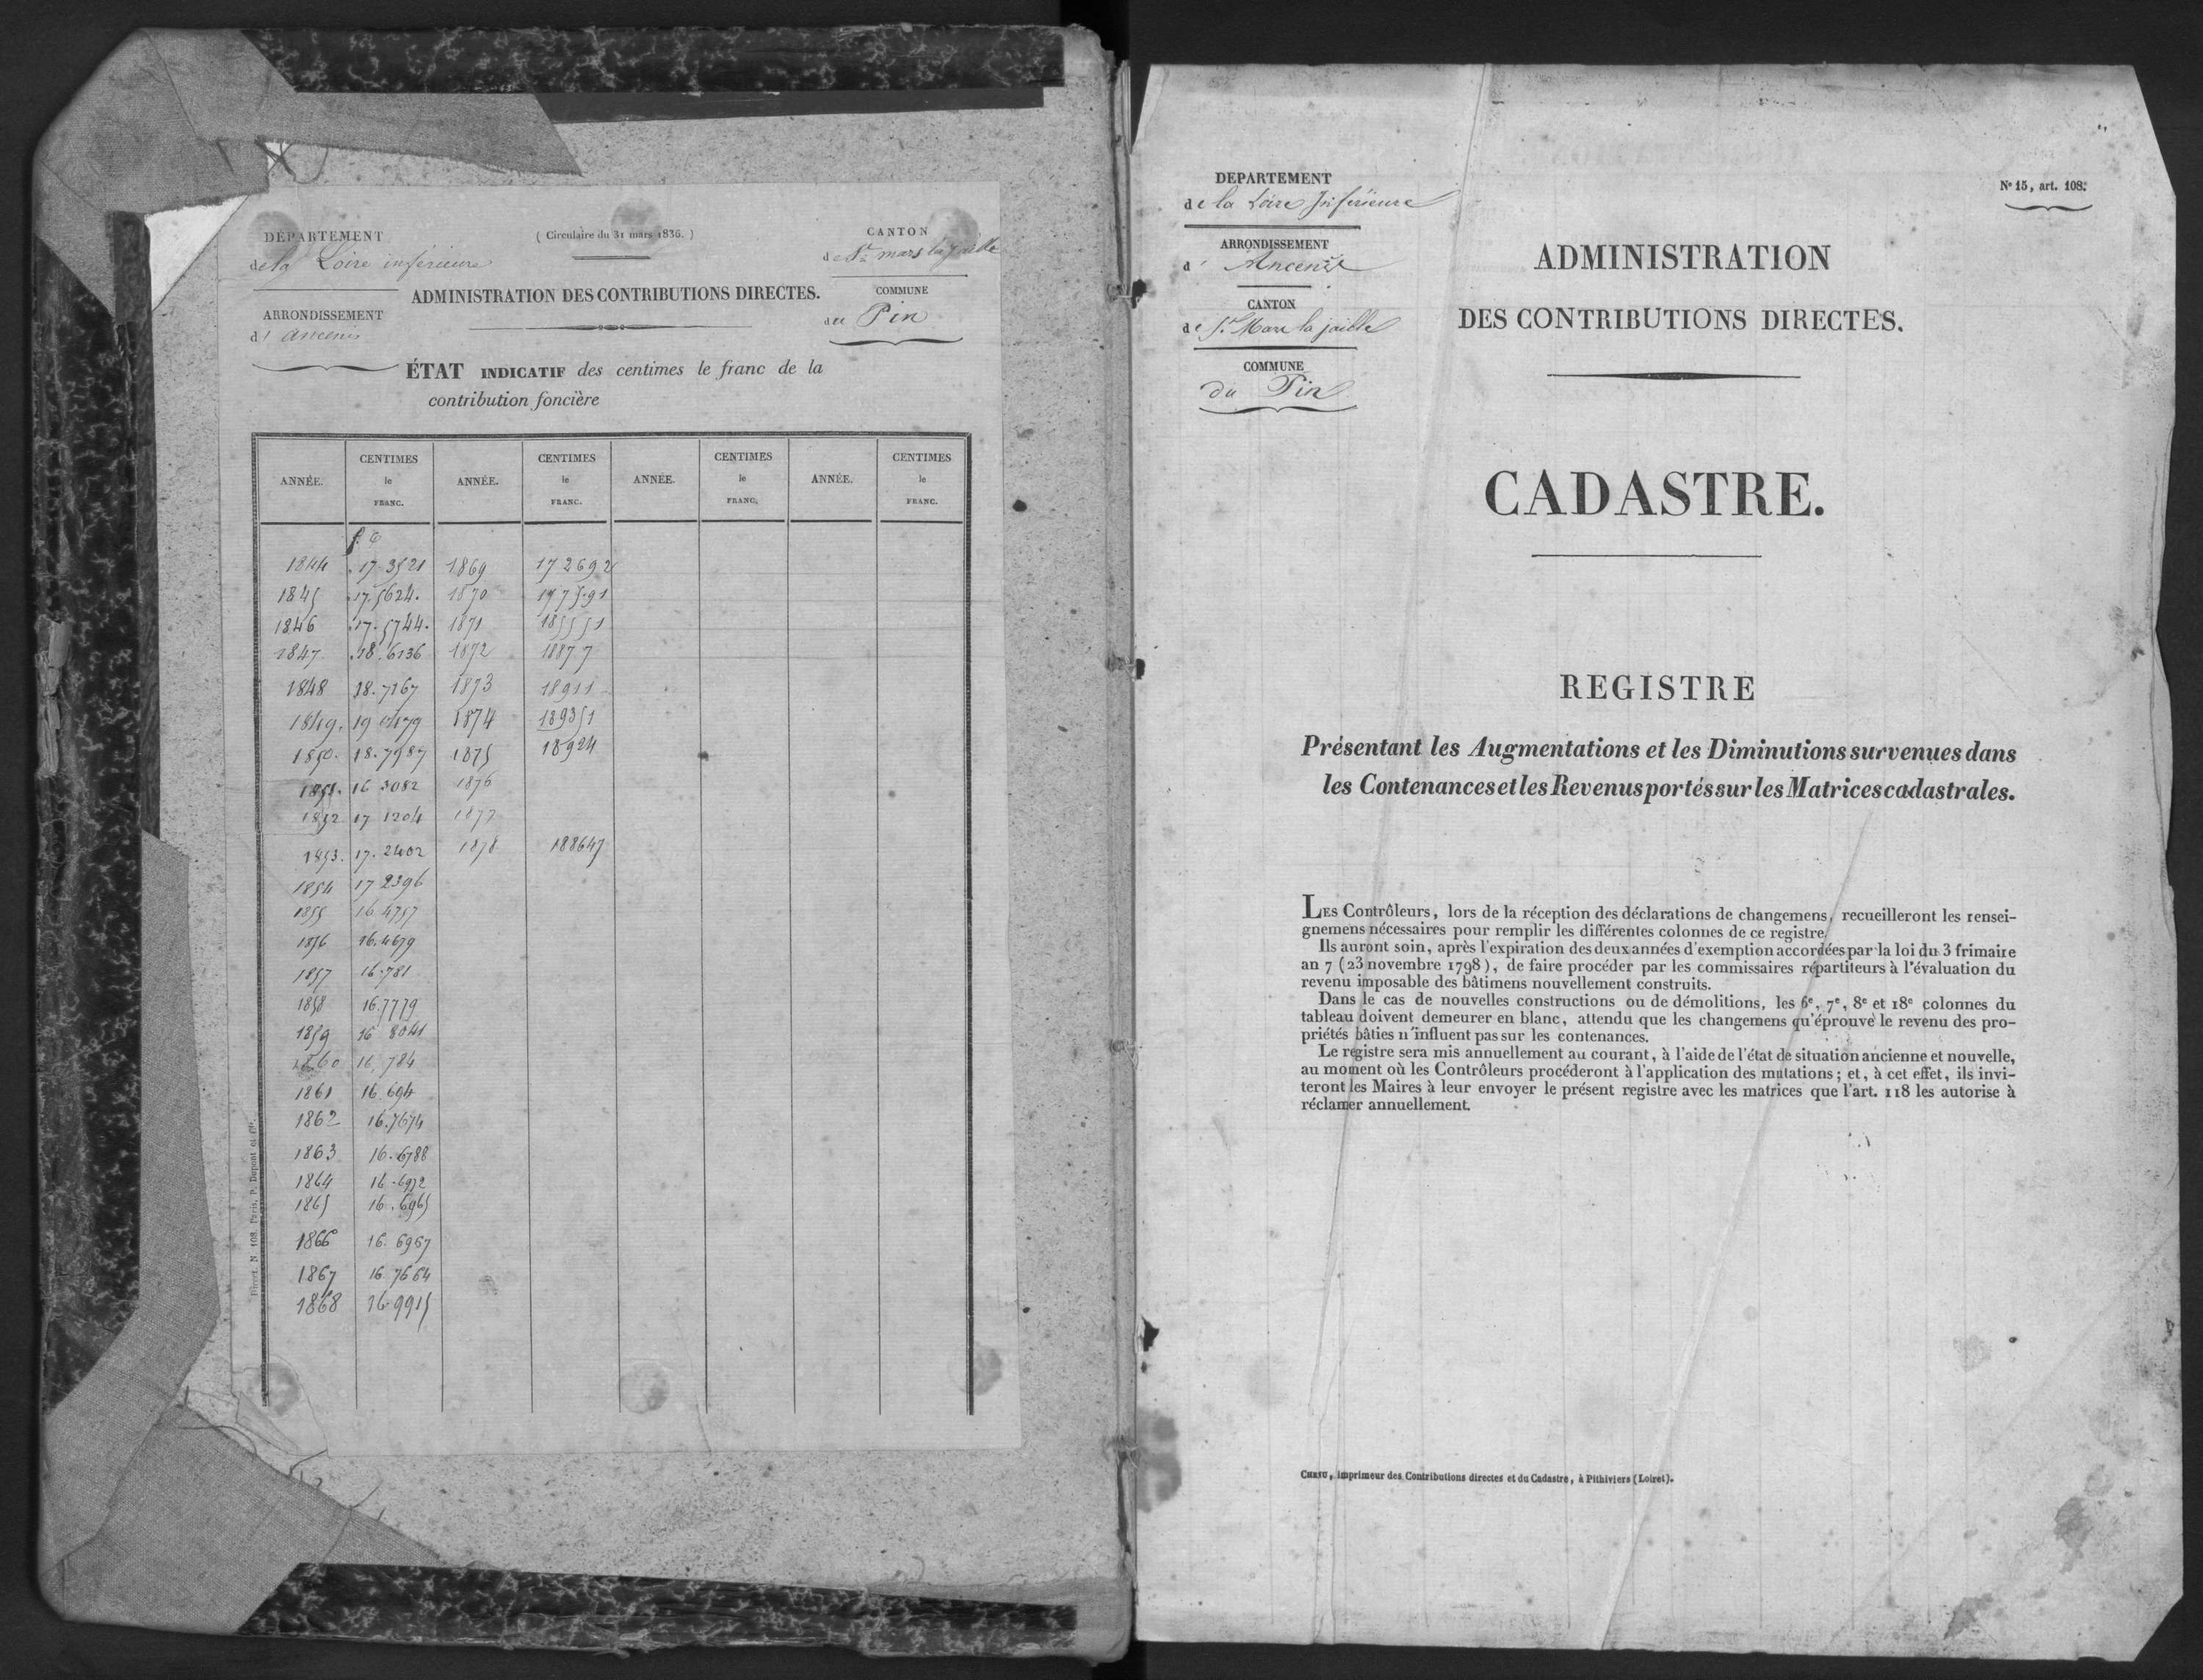 DÉPARTEMENT
de la Loire inférieure
ARRONDISSEMENT
d' ancenis
( Circulaire du 31 mars 1836. )
ADMINISTRATION DES CONTRIBUTIONS DIRECTES.
CANTON
de St mars la jaille
COMMUNE
du Pin
ÉTAT INDICATIF des centimes le franc de la
contribution foncière
ANNÉE. CENTIMES le FRANC. ANNÉE. CENTIMES le FRANC. ANNÉE. CENTIMES le FRANC. ANNÉE. CENTIMES le FRANC.
f. c
1844 17.3521 1869 172692
1845 17.5624. 1870
1846 17.5744. 1871 185551
1847 18.6136 1872 1887 7
1848 18.7167 1873 18911
1849. 1874 189351
1850. 18.7987 1875 18924
16 3082 1876
1852 17 1204 1877
1853. 17.2402 1878 188647
1854 17 2396
1855 16.4757
1856 16.4679
1857 16.781
1858 16.7779
1859 16 8041
1860 16,784
1861 16 694
1862 16.7674
1863 16.6788
1864 16.6972
1865 16.6965
1866 16.6967
1867 16 7664
1868 16 9915
Direct. N 108. Paris, P. Dupont et Cie.
DEPARTEMENT
de la Loire Inférieure
ARRONDISSEMENT
d' Ancenis
CANTON
de St. Mars la jaille
COMMUNE
du Pin
No 15, art. 108.
ADMINISTRATION
DES CONTRIBUTIONS DIRECTES.
CADASTRE.
REGISTRE
Présentant les Augmentations et les Diminutions survenues dans
les Contenances et les Revenus portés sur les Matrices cadastrales.
LES Contrôleurs, lors de la réception des déclarations de changemens, recueilleront les rensei-
gnemens nécessaires pour remplir les différentes colonnes de ce registre.
Ils auront soin, après l'expiration des deux années d'exemption accordées par la loi du 3 frimaire
an 7 (23 novembre 1798), de faire procéder par les commissaires répartiteurs à l'évaluation du
revenu imposable des bâtimens nouvellement construits.
Dans le cas de nouvelles constructions ou de démolitions, les 6e, 7e, 8e et 18e colonnes du
tableau doivent demeurer en blanc, attendu que les changemens qu'éprouve le revenu des pro-
priétés bâties n'influent pas sur les contenances.
Le registre sera mis annuellement au courant, à l'aide de l'état de situation ancienne et nouvelle,
au moment où les Contrôleurs procéderont à l'application des mutations; et, à cet effet, ils invi-
teront les Maires à leur envoyer le présent registre avec les matrices que l'art. 118 les autorise à
réclamer annuellement.
CHENU, imprimeur des Contributions directes et du Cadastre, à Pithiviers (Loiret).